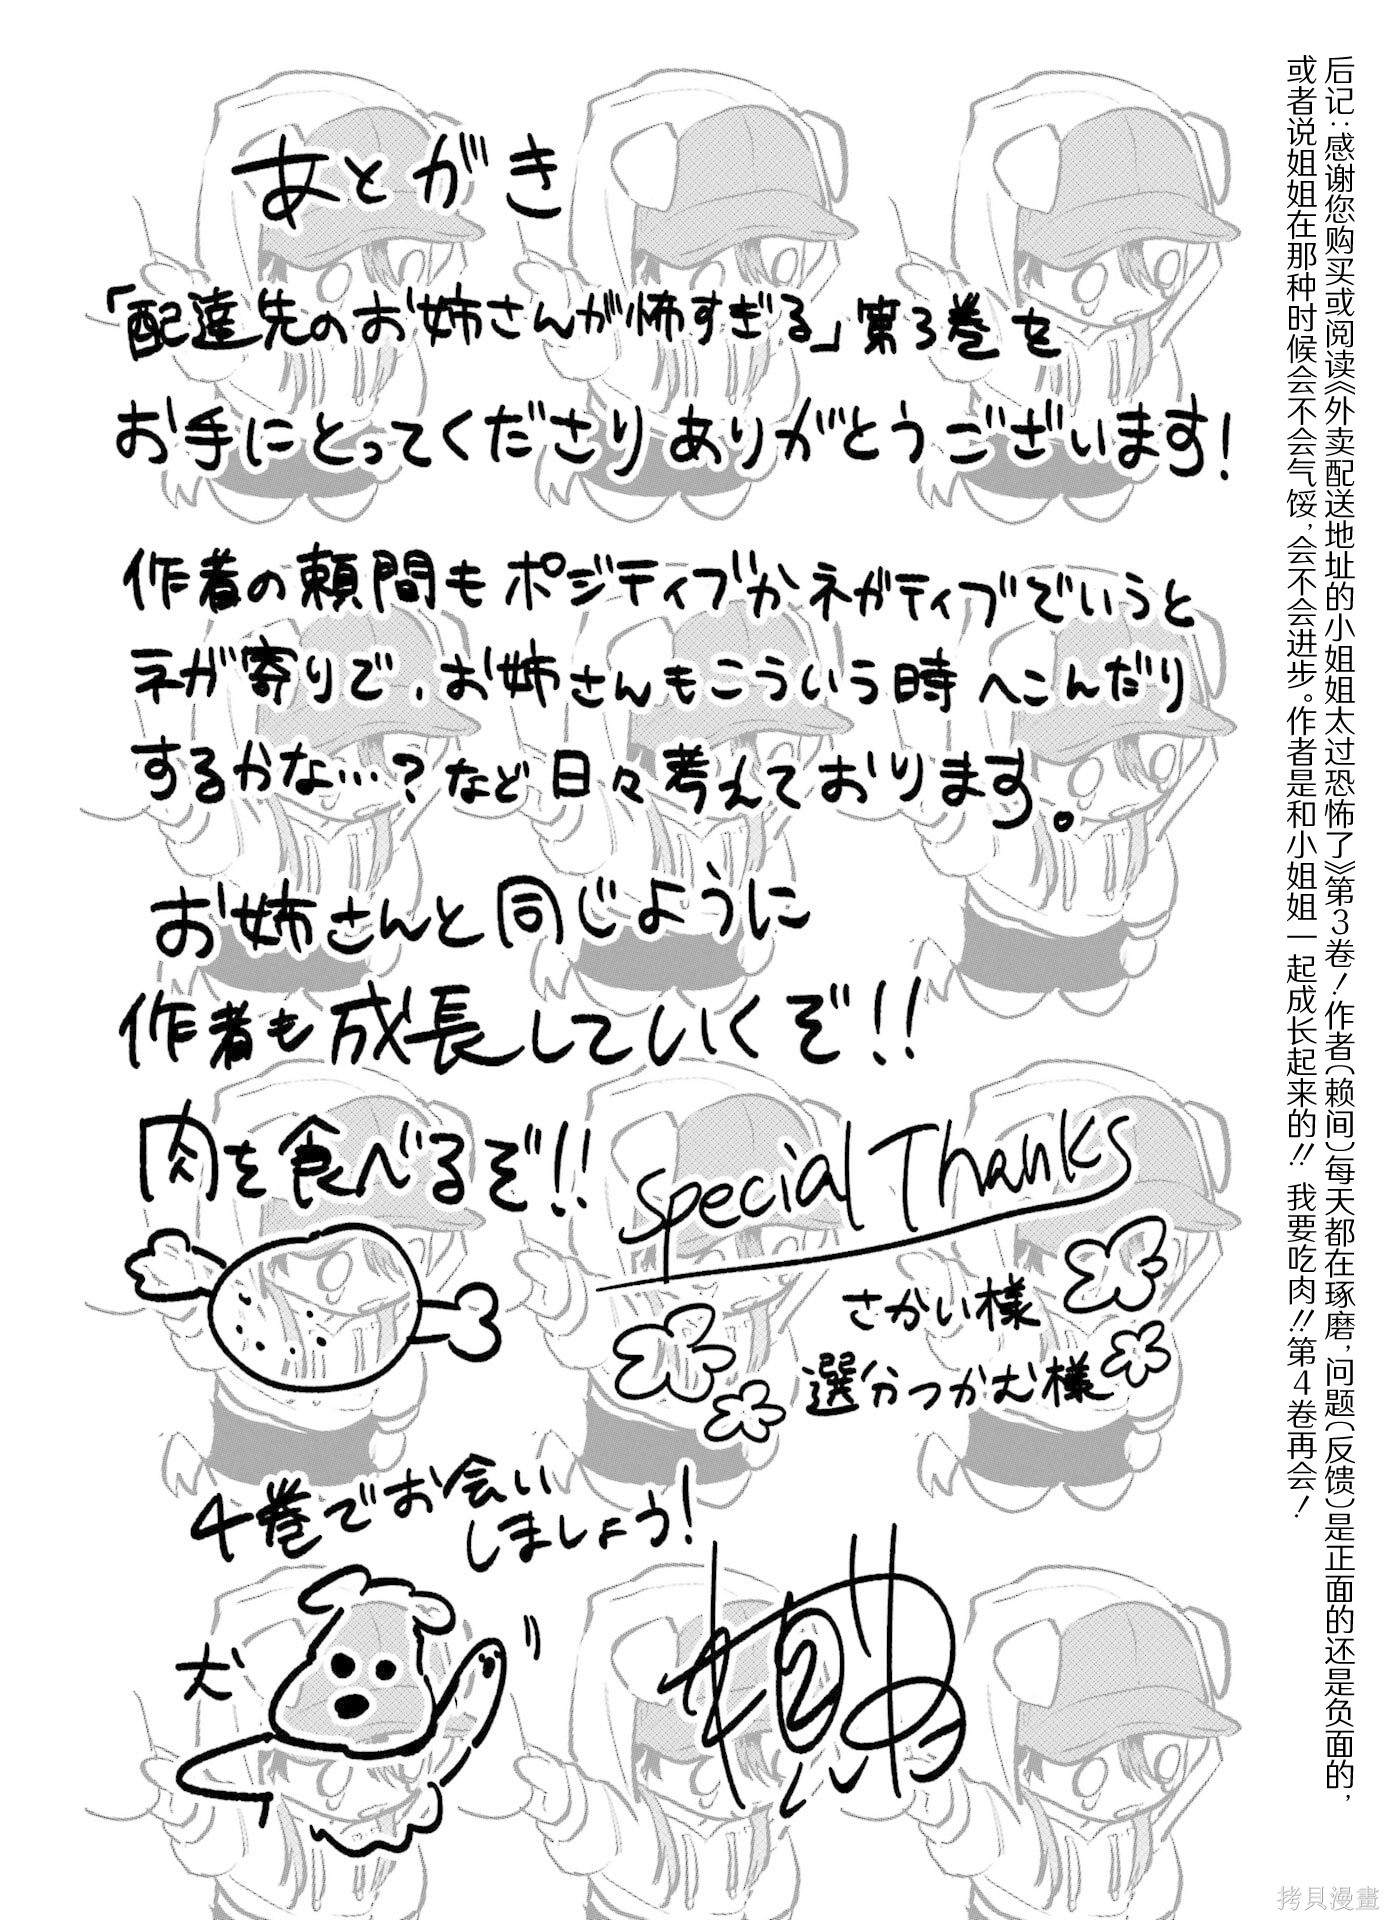 あとがき
「配達先のお姉さんが怖すぎる」第3巻を
お手にとってくださりありがとうございます!
作者の頼間もポジティブかネガティブでいうと
ネガ寄りで、お姉さんもこういう時へこんだり
するかな…?など日々考えております。
お姉さんと同じように
作者も成長していくぞ!!
肉を食べるぞ!!
Special Thanks
さかい様
選分つかむ様
4巻でお会い
しましょう!
犬
后记：感谢您购买或阅读《外卖配送地址的小姐姐太过恐怖了》第3卷！作者（赖间）每天都在琢磨，问题（反馈）是正面的还是负面的，
或者说姐姐在那种时候会不会气馁，会不会进步。作者是和小姐姐一起成长起来的!!我要吃肉!!第4卷再会！
拷貝漫畫